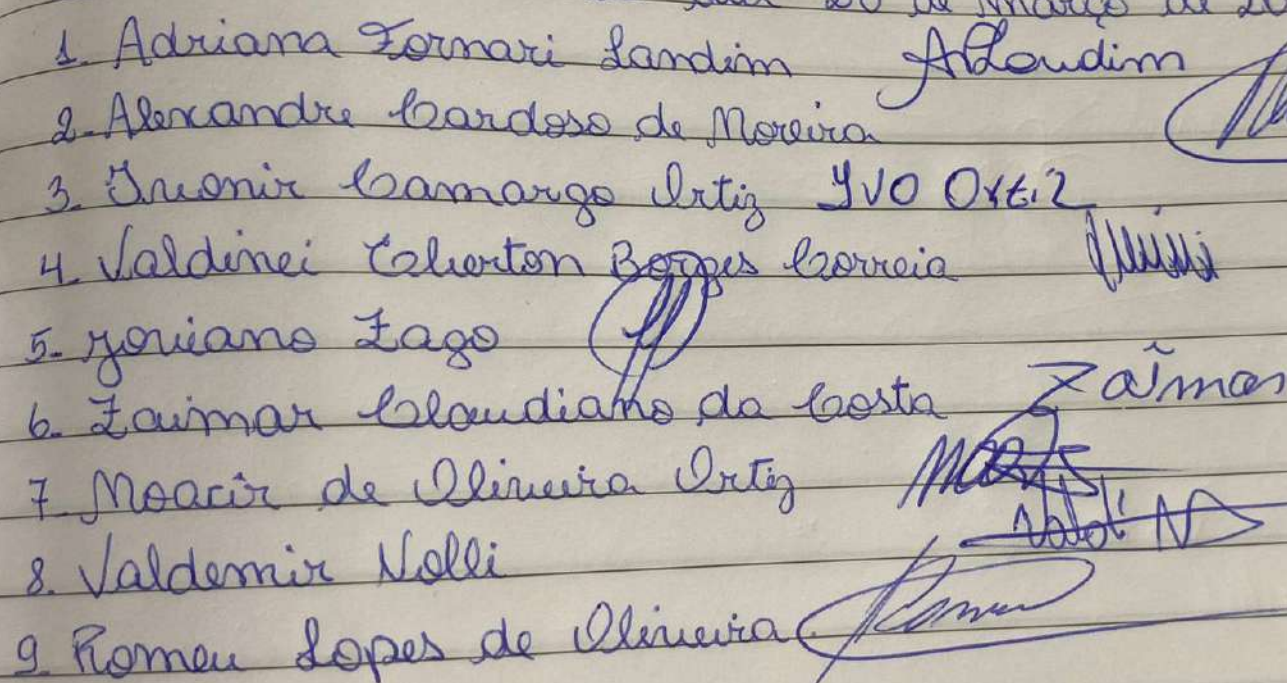 de março de 20
1. Adriana Fornari Landim ALandim
2. Alexandre Cardoso de Moreira
3. Ivonir Camargo Ortiz IVO Ortiz
4. Valdinei Borges Correia
5. Zago
6. Zaimar Claudiano da Costa Zaimar
7. Moacir de Oliveira Ortiz
8. Valdemir Nolli
9. Romeu Lopes de Oliveira